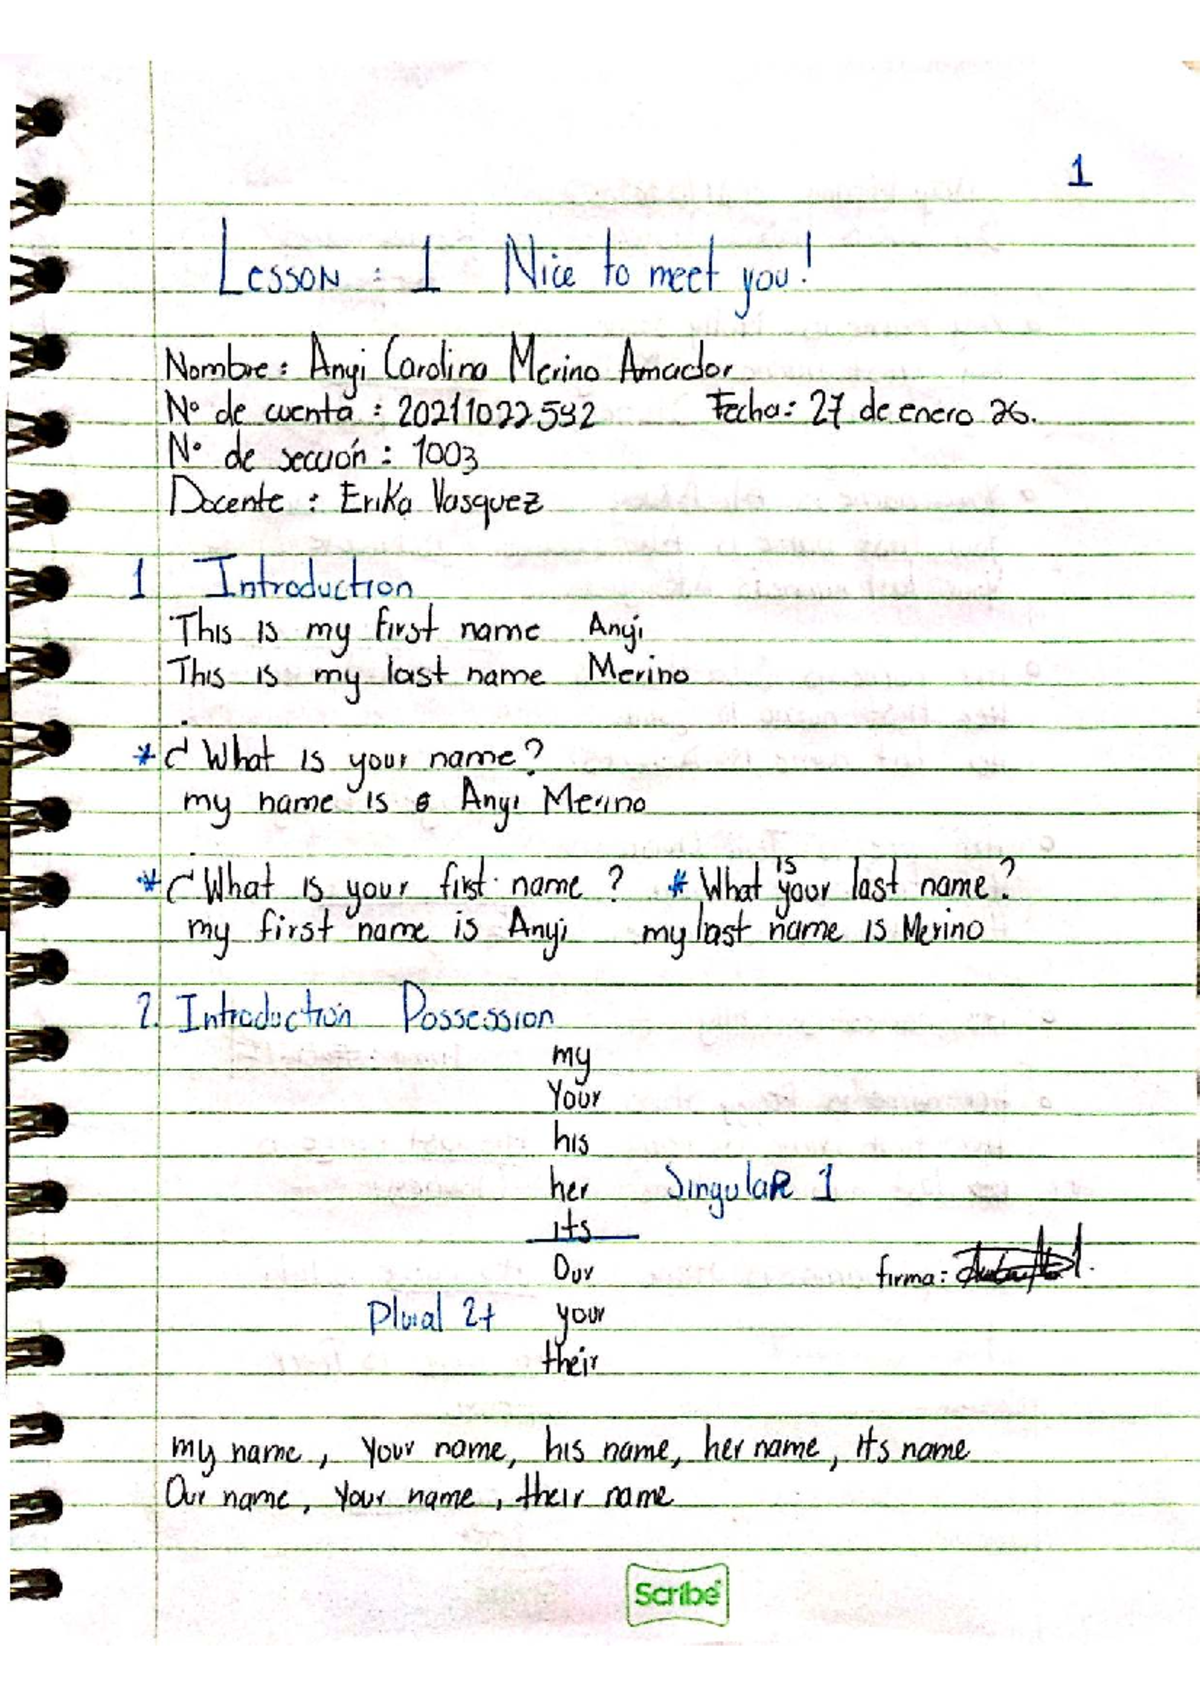 1
Lesson : 1 Nice to meet you!
Nombre: Anyi Carolina Merino Amador
N° de cuenta : 20211022592 Fecha: 27 de enero 26.
N° de sección : 1003
Docente : Erika Vasquez
1 Introduction
This is my first name Anyi
This is my last name Merino
* ¿ What is your name?
my name is Anyi Merino
* ¿ What is your first name ? * What is your last name?
my first name is Anyi my last name is Merino
2. Introduction Possession
my
Your
his
her Singular 1
its
Our firma:
Plural 2+ your
their
my name, Your name, his name, her name, its name
Our name, Your name, their name
Scribe